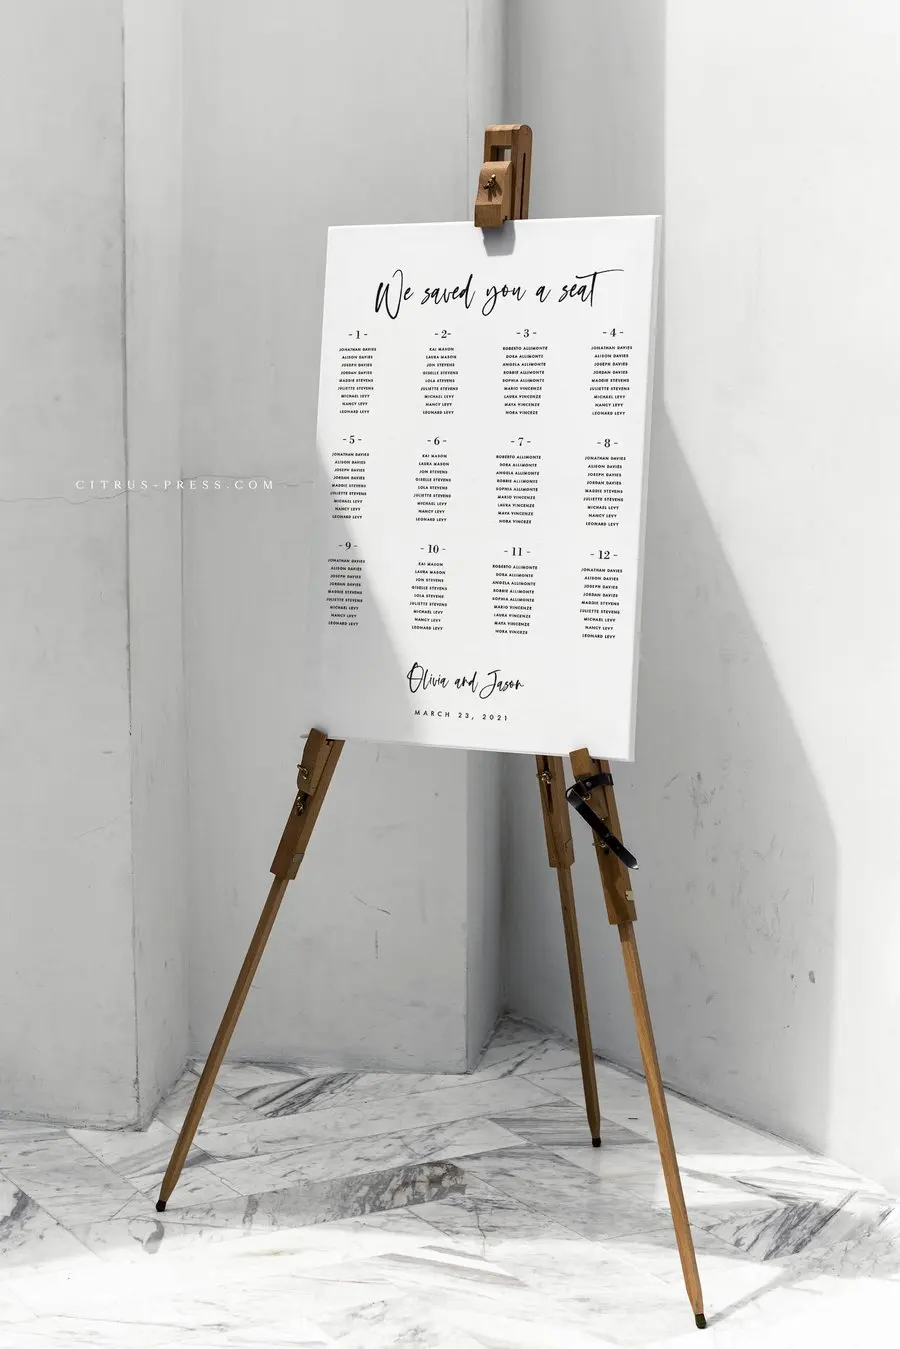 We saved you a seat
-1-
JONATHAN DAVIES
ALISON DAVIES
JOSEPH DAVIES
JORDAN DAVIES
MAGGIE STEVENS
JULIETTE STEVENS
MICHAEL LEVY
NANCY LEVY
LEONARD LEVY
-2-
KAI MASON
LAURA MASON
JON STEVENS
GISELLE STEVENS
LOLA STEVENS
JULIETTE STEVENS
MICHAEL LEVY
NANCY LEVY
LEONARD LEVY
-3-
ROBERTO ALLIMONTE
DORA ALLIMONTE
ANGELA ALLIMONTE
ROBBIE ALLIMONTE
SOPHIA ALLIMONTE
MARIO VINCENZE
LAURA VINCENZE
MAYA VINCENZE
NORA VINCEZE
-4-
JONATHAN DAVIES
ALISON DAVIES
JOSEPH DAVIES
JORDAN DAVIES
MAGGIE STEVENS
JULIETTE STEVENS
MICHAEL LEVY
NANCY LEVY
LEONARD LEVY
-5-
JONATHAN DAVIES
ALISON DAVIES
JOSEPH DAVIES
JORDAN DAVIES
MAGGIE STEVENS
JULIETTE STEVENS
MICHAEL LEVY
NANCY LEVY
LEONARD LEVY
-6-
KAI MASON
LAURA MASON
JON STEVENS
GISELLE STEVENS
LOLA STEVENS
JULIETTE STEVENS
MICHAEL LEVY
NANCY LEVY
LEONARD LEVY
-7-
ROBERTO ALLIMONTE
DORA ALLIMONTE
ANGELA ALLIMONTE
ROBBIE ALLIMONTE
SOPHIA ALLIMONTE
MARIO VINCENZE
LAURA VINCENZE
MAYA VINCENZE
NORA VINCEZE
-8-
JONATHAN DAVIES
ALISON DAVIES
JOSEPH DAVIES
JORDAN DAVIES
MAGGIE STEVENS
JULIETTE STEVENS
MICHAEL LEVY
NANCY LEVY
LEONARD LEVY
CITRUS-PRESS.COM
-9-
JONATHAN DAVIES
ALISON DAVIES
JOSEPH DAVIES
JORDAN DAVIES
MAGGIE STEVENS
JULIETTE STEVENS
MICHAEL LEVY
NANCY LEVY
LEONARD LEVY
-10-
KAI MASON
LAURA MASON
JON STEVENS
GISELLE STEVENS
LOLA STEVENS
JULIETTE STEVENS
MICHAEL LEVY
NANCY LEVY
LEONARD LEVY
-11-
ROBERTO ALLIMONTE
DORA ALLIMONTE
ANGELA ALLIMONTE
ROBBIE ALLIMONTE
SOPHIA ALLIMONTE
MARIO VINCENZE
LAURA VINCENZE
MAYA VINCENZE
NORA VINCEZE
-12-
JONATHAN DAVIES
ALISON DAVIES
JOSEPH DAVIES
JORDAN DAVIES
MAGGIE STEVENS
JULIETTE STEVENS
MICHAEL LEVY
NANCY LEVY
LEONARD LEVY
Olivia and Jason
MARCH 23, 2021